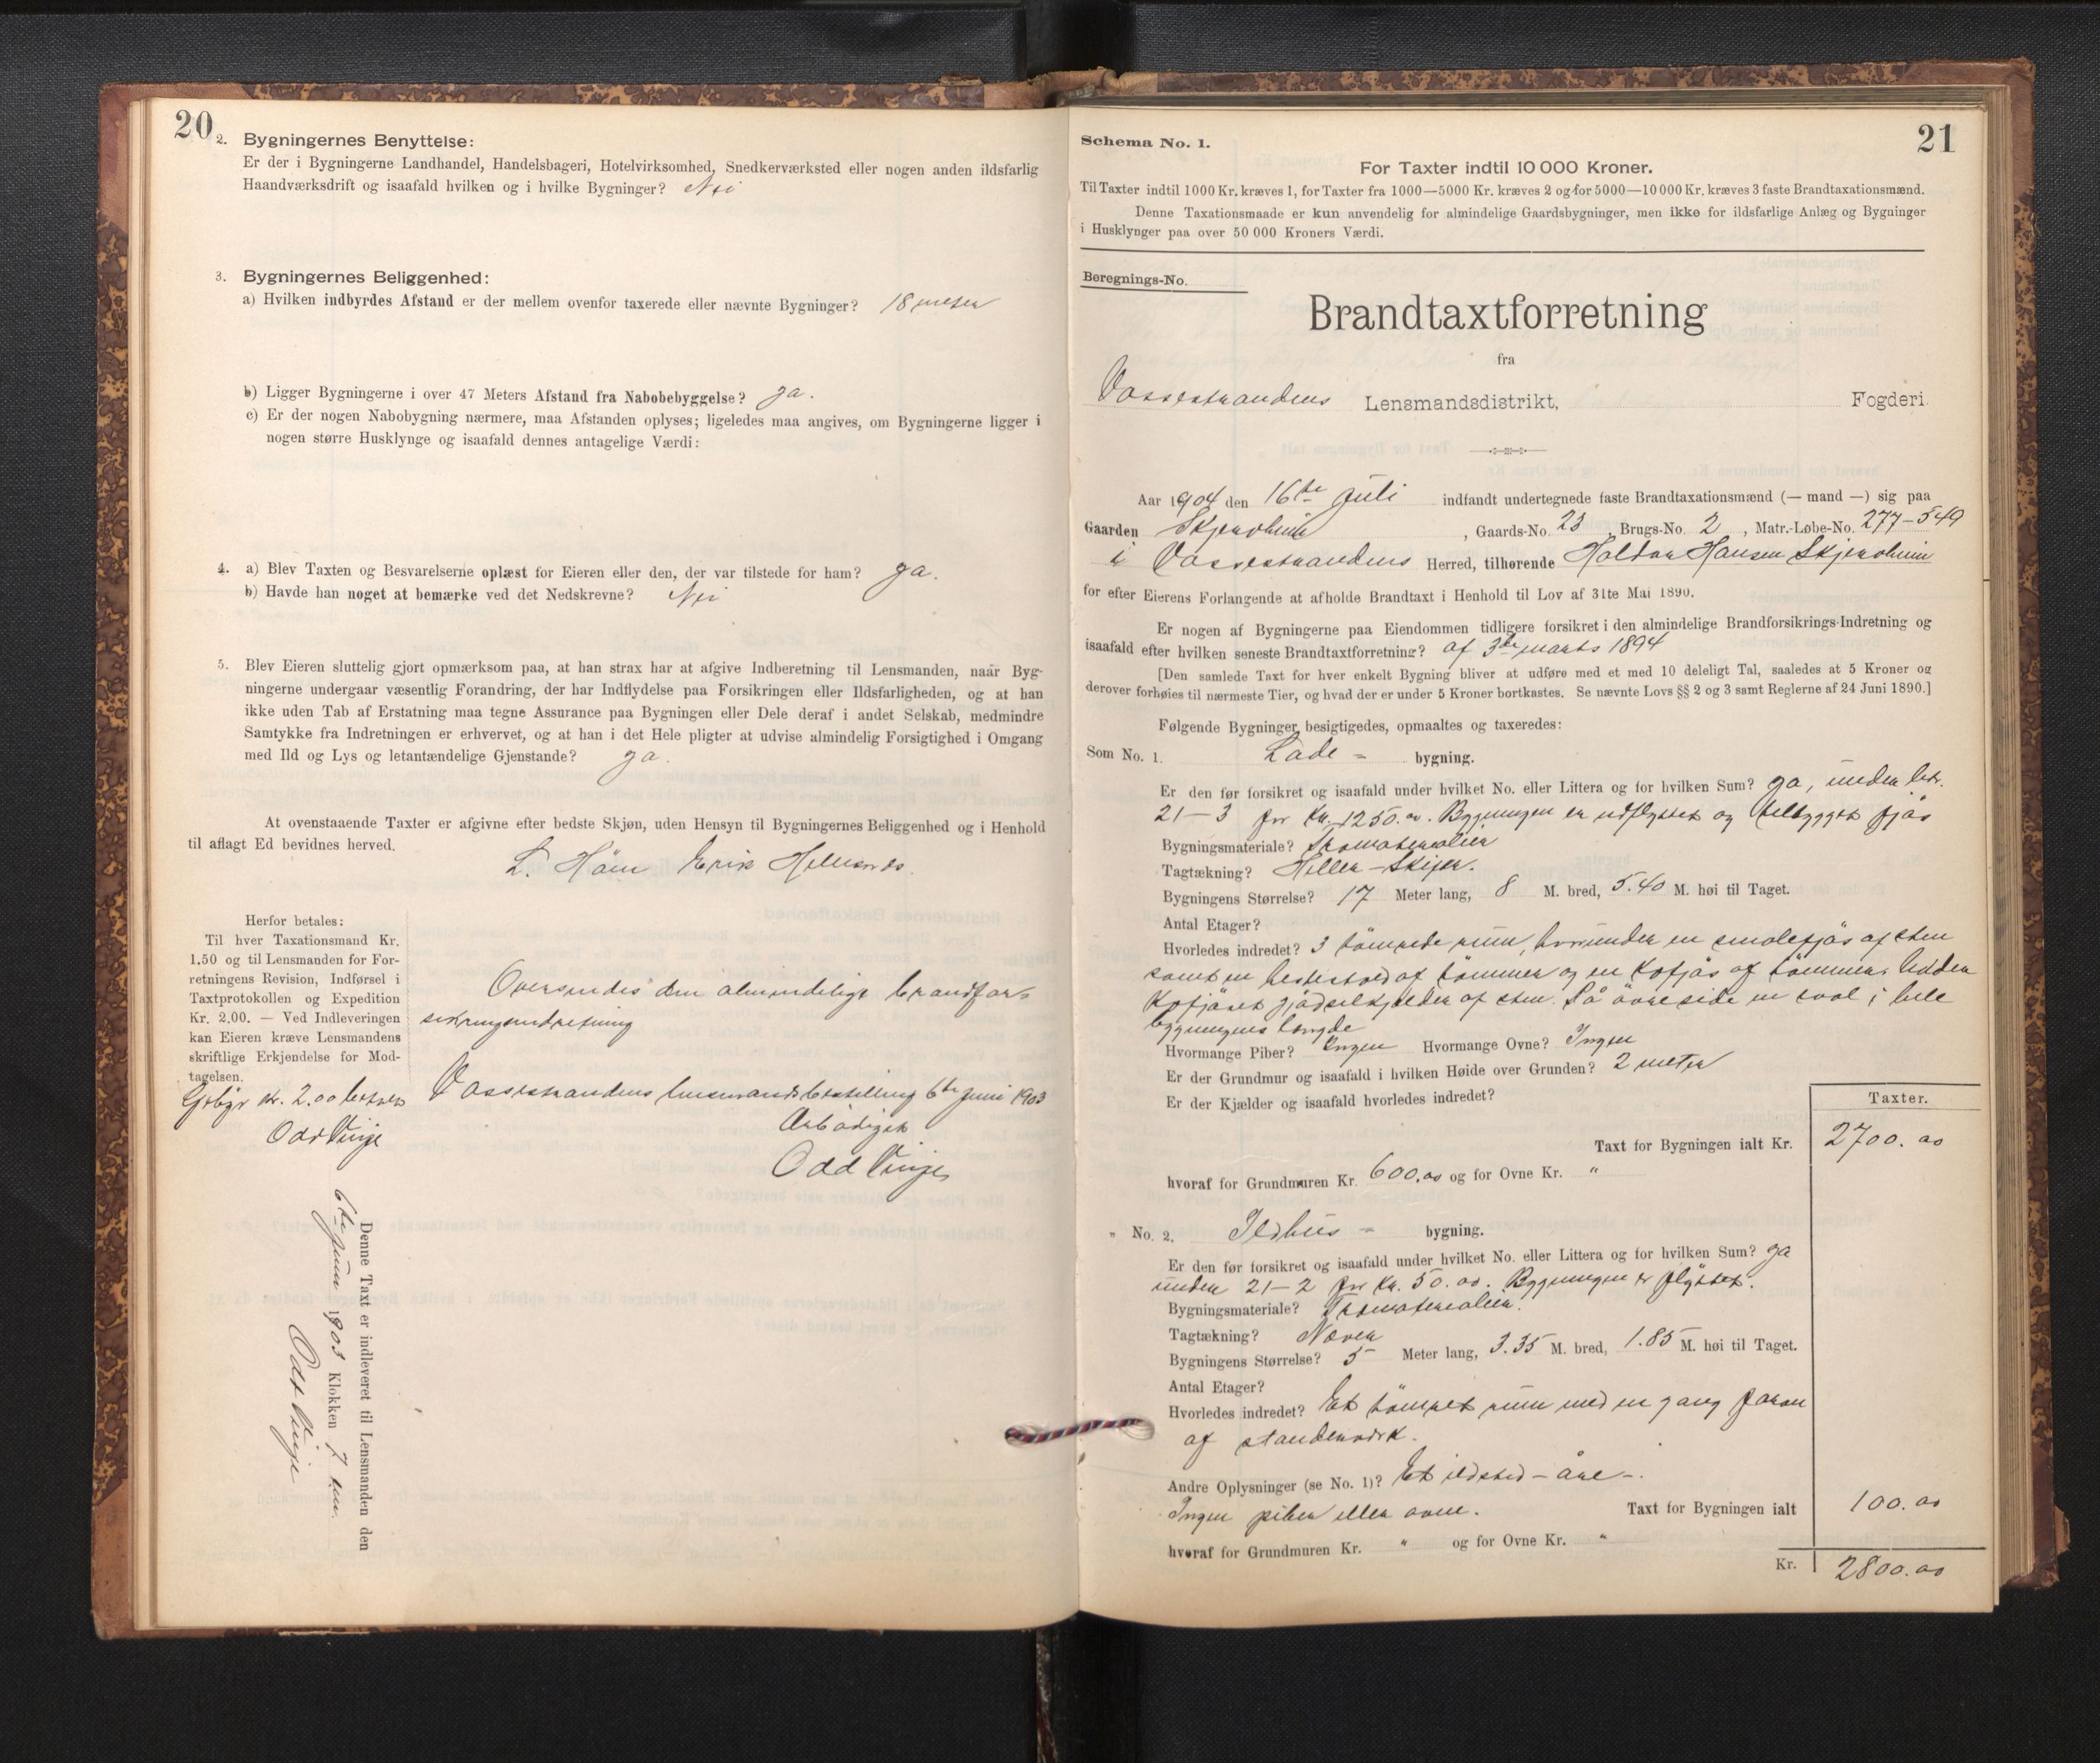 20
2. Bygningernes Benyttelse:
Er der i Bygningerne Landhandel, Handelsbageri, Hotelvirksomhed, Snedkerværksted eller nogen anden ildsfarlig
Haandværksdrift og isaafald hvilken og i hvilke Bygninger? Nei
3. Bygningernes Beliggenhed:
a) Hvilken indbyrdes Afstand er der mellem ovenfor taxerede eller nævnte Bygninger? 18 meter
b) Ligger Bygningerne i over 47 Meters Afstand fra Nabobebyggelse? ja.
c) Er der nogen Nabobygning nærmere, maa Afstanden oplyses; ligeledes maa angives, om Bygningerne ligger i
nogen større Husklynge og isaafald dennes antagelige Værdi:
4. a) Blev Taxten og Besvarelserne oplæst for Eieren eller den, der var tilstede for ham? ja.
b) Havde han noget at bemærke ved det Nedskrevne? Nei
5. Blev Eieren sluttelig gjort opmærksom paa, at han strax har at afgive Indberetning til Lensmanden, naar Byg-
ningerne undergaar væsentlig Forandring, der har Indflydelse paa Forsikringen eller Ildsfarligheden, og at han
ikke uden Tab af Erstatning maa tegne Assurance paa Bygningen eller Dele deraf i andet Selskab, medmindre
Samtykke fra Indretningen er erhvervet, og at han i det Hele pligter at udvise almindelig Forsigtighed i Omgang
med Ild og Lys og letantændelige Gjenstande? ja.
At ovenstaaende Taxter er afgivne efter bedste Skjøn, uden Hensyn til Bygningernes Beliggenhed og i Henhold
til aflagt Ed bevidnes herved.
L. Häm Erik
Herfor betales:
Til hver Taxationsmand Kr.
1.50 og til Lensmanden for For-
retningens Revision, Indførsel i
Taxtprotokollen og Expedition
Kr. 2,00. — Ved Indleveringen
kan Eieren kræve Lensmandens
skriftlige Erkjendelse for Mod-
tagelsen.
Gebyr kr. 2.00 betalt
Odd Vinje
Oversendes den almindelige brandfor-
sikringsindretning
Vossestrandens lensmandsbestilling 6te juni 1903
Ærbödigst
Odd Vinje
Denne Taxt er indleveret til Lensmanden den
6te juni 1903 Klokken 7 em.
Odd Vinje
21
Schema No. 1.
For Taxter indtil 10 000 Kroner.
Til Taxter indtil 1000 Kr. kræves 1, for Taxter fra 1000—5000 Kr. kræves 2 og for 5000—10 000 Kr. kræves 3 faste Brandtaxationsmænd.
Denne Taxationsmaade er kun anvendelig for almindelige Gaardsbygninger, men ikke for ildsfarlige Anlæg og Bygninger
i Husklynger paa over 50 000 Kroners Værdi.
Beregnings-No.
Brandtaxtforretning
fra
Vossestrandens Lensmandsdistrikt, Fogderi
Aar 1904 den 16de juli indfandt undertegnede faste Brandtaxationsmænd (— mand —) sig paa
Gaarden Skjerdheim, Gaards-No. 23, Brugs-No. 2, Matr.-Løbe-No. 277-549
i Vossestrandens Herred, tilhørende Haldor Hansen Skjerdheim
for efter Eierens Forlangende at afholde Brandtaxt i Henhold til Lov af 31te Mai 1890.
Er nogen af Bygningerne paa Eiendommen tidligere forsikret i den almindelige Brandforsikrings-Indretning og
isaafald efter hvilken seneste Brandtaxtforretning? af 3die marts 1894
[Den samlede Taxt for hver enkelt Bygning bliver at udføre med et med 10 deleligt Tal, saaledes at 5 Kroner og
derover forhøies til nærmeste Tier, og hvad der er under 5 Kroner bortkastes. Se nævnte Lovs §§ 2 og 3 samt Reglerne af 24 Juni 1890.]
Følgende Bygninger besigtigedes, opmaaltes og taxeredes:
Som No. 1. Lade - bygning.
Er den før forsikret og isaafald under hvilket No. eller Littera og for hvilken Sum? ja, under litr.
21-3 for kr. 1250.00. Bygningen er udflyttet og tilbygget fjös
Bygningsmateriale? Træmaterialier
Tagtækning? Heller-Skifer.
Bygningens Størrelse? 17 Meter lang, 8 M. bred, 5.40 M. høi til Taget.
Antal Etager?
Hvorledes indredet? 3 tömrede rum, herunder en smalefjös af sten
samt en hestestald af tömmer og en kofjös af tömmer. Under
Kofjöset gjödselkjelder af sten. På övre side en sval i hele
bygningens længde
Hvormange Piber? Ingen Hvormange Ovne? Ingen
Er der Grundmur og isaafald i hvilken Høide over Grunden? 2 meter
Er der Kjælder og isaafald hvorledes indredet?
Taxter.
Taxt for Bygningen ialt Kr. 2700.00
hvoraf for Grundmuren Kr. 600.00 og for Ovne Kr. "
" No. 2. Ildhus - bygning.
Er den før forsikret og isaafald under hvilket No. eller Littera og for hvilken Sum? ja
under 21-2 for kr. 50.00. Bygningen er flyttet.
Bygningsmateriale? Træmaterialier.
Tagtækning? Næver
Bygningens Størrelse? 5 Meter lang, 3.35 M. bred, 1.85 M. høi til Taget.
Antal Etager?
Hvorledes indredet? Et tömret rum med en gang foran
af standerværk.
Andre Oplysninger (se No. 1)? Et ildsted - åre -.
Ingen piber eller ovne. Taxt for Bygningen ialt 100.00
hvoraf for Grundmuren Kr. " og for Ovne Kr. "
Kr. 2800.00